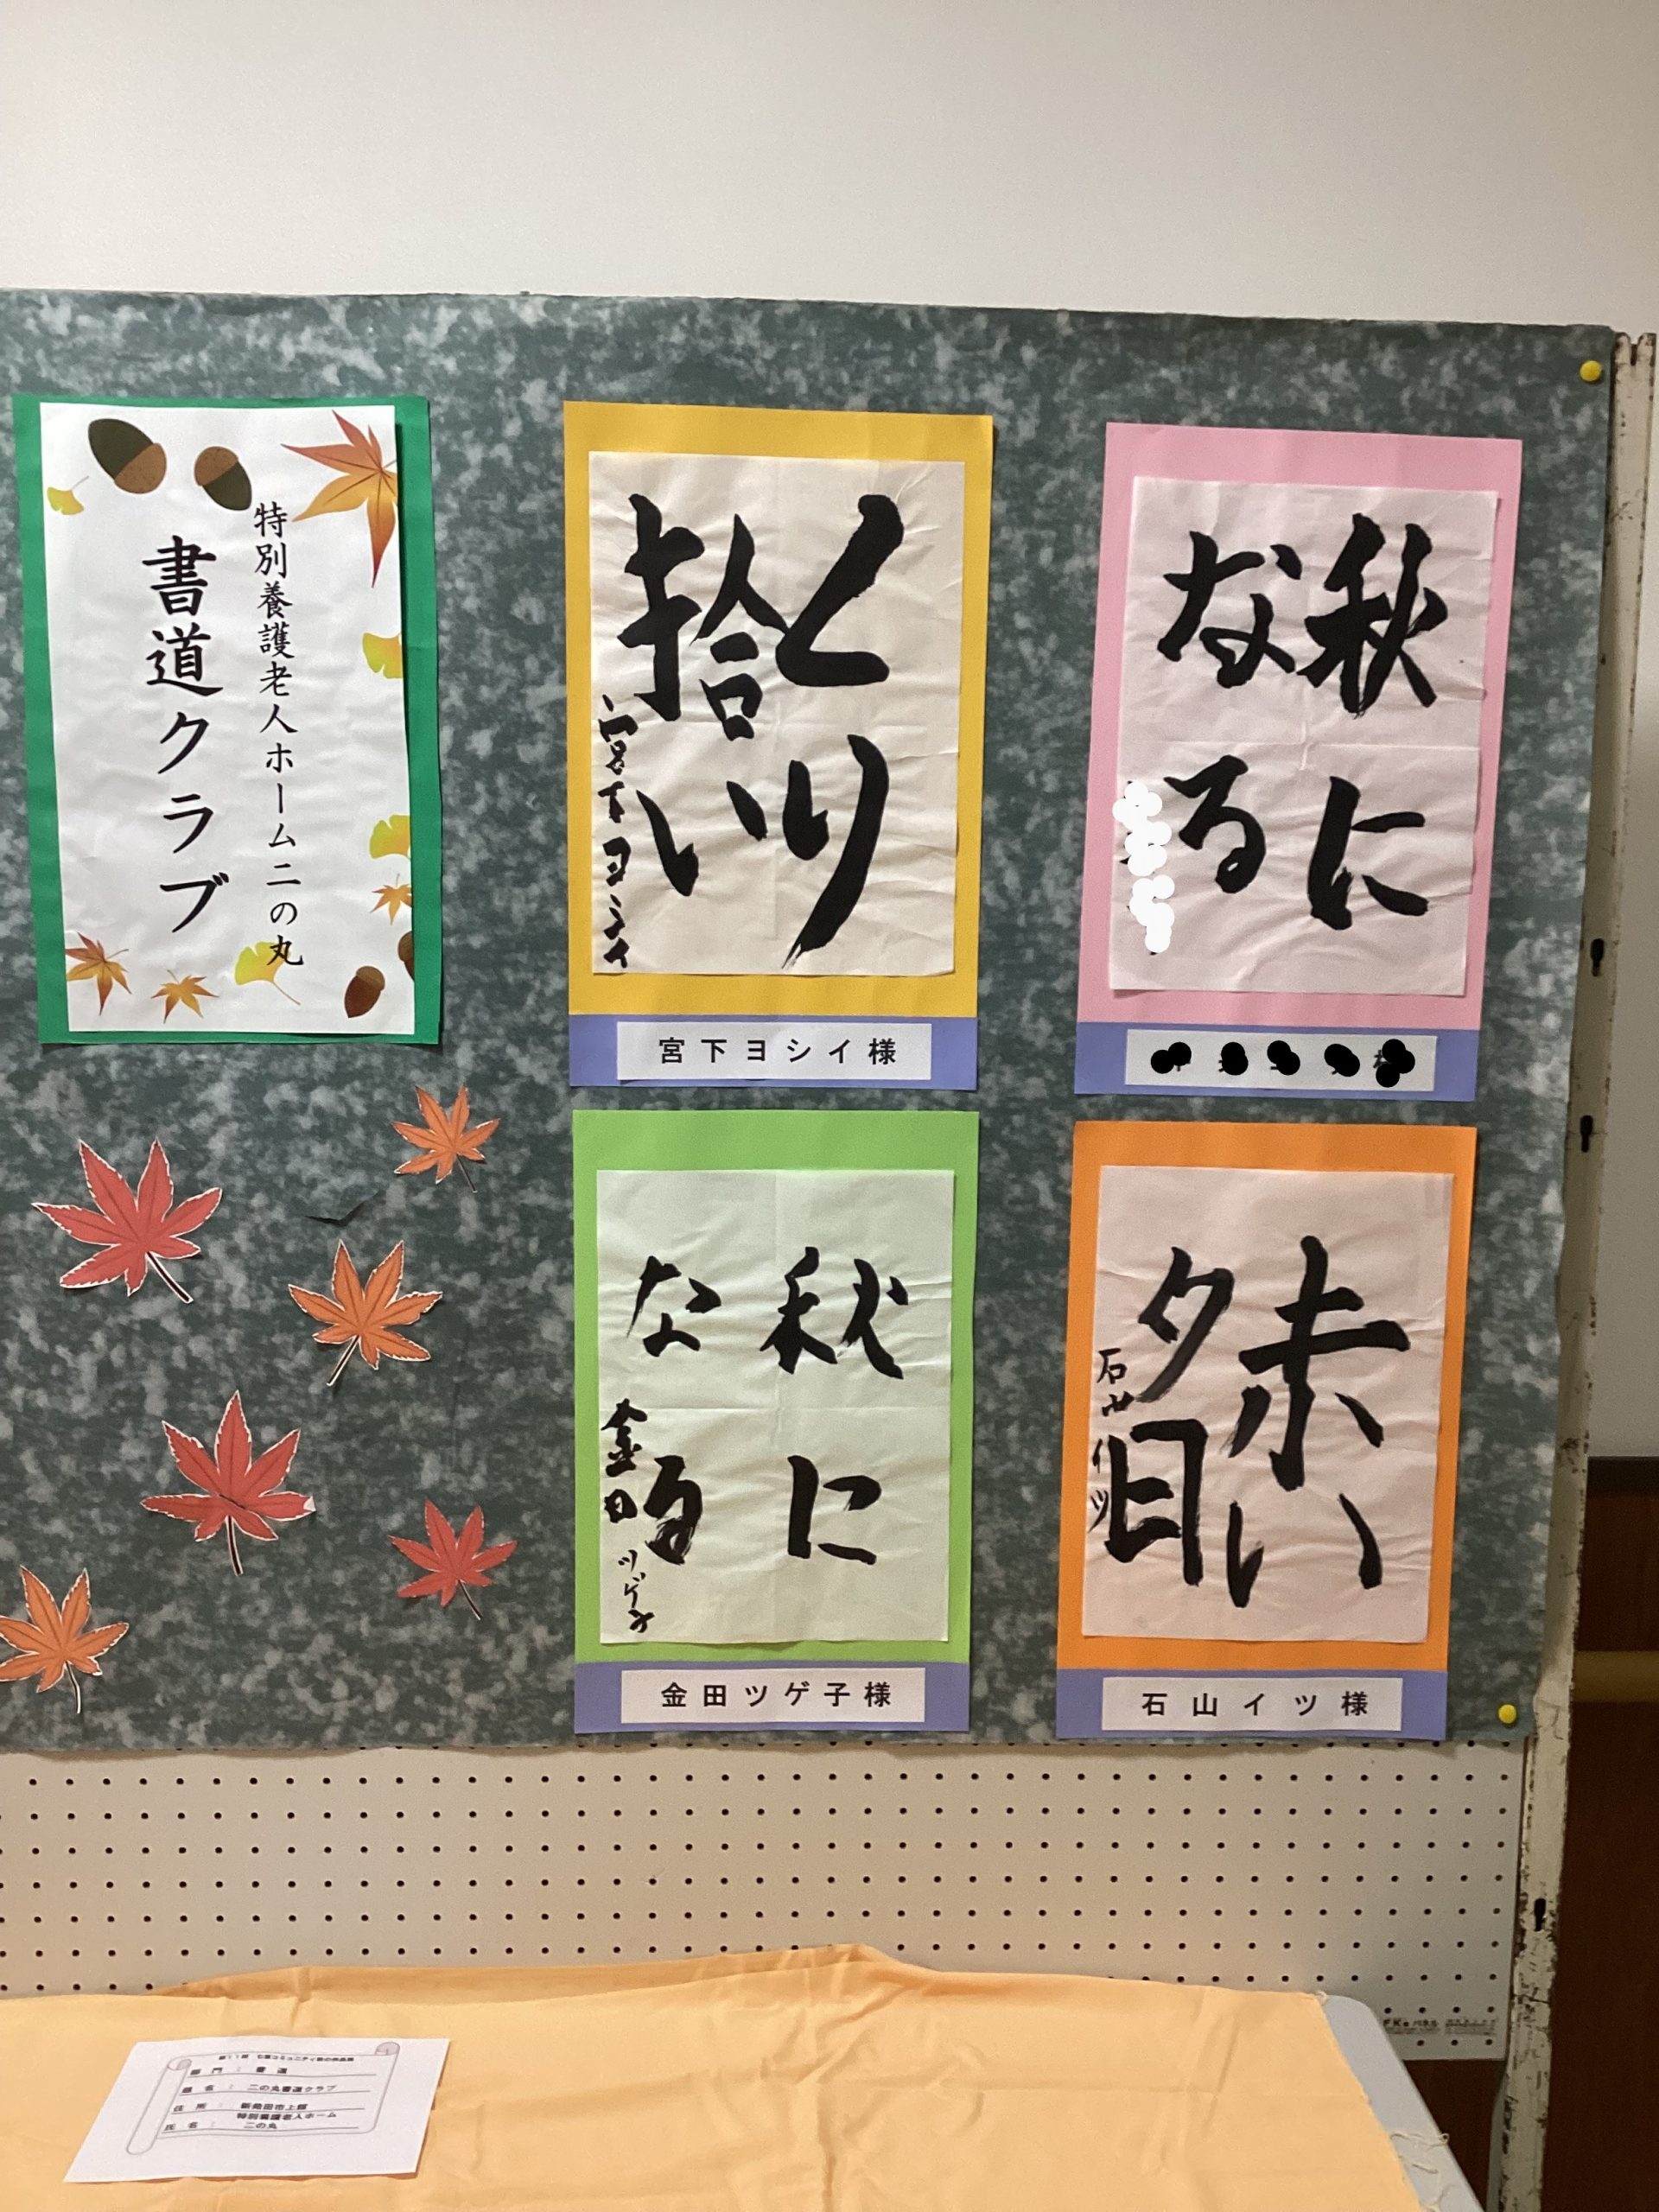 特別養護老人ホーム二の丸
書道クラブ
くり
拾い
宮下ヨシイ
宮下ヨシイ様
秋に
なる
秋に
なる
金田ツゲ子
金田ツゲ子様
赤い
夕日
石山イツ
石山イツ様
部門：書道
題名：二の丸書道クラブ
住所：新発田市上館
特別養護老人ホーム
氏名：二の丸